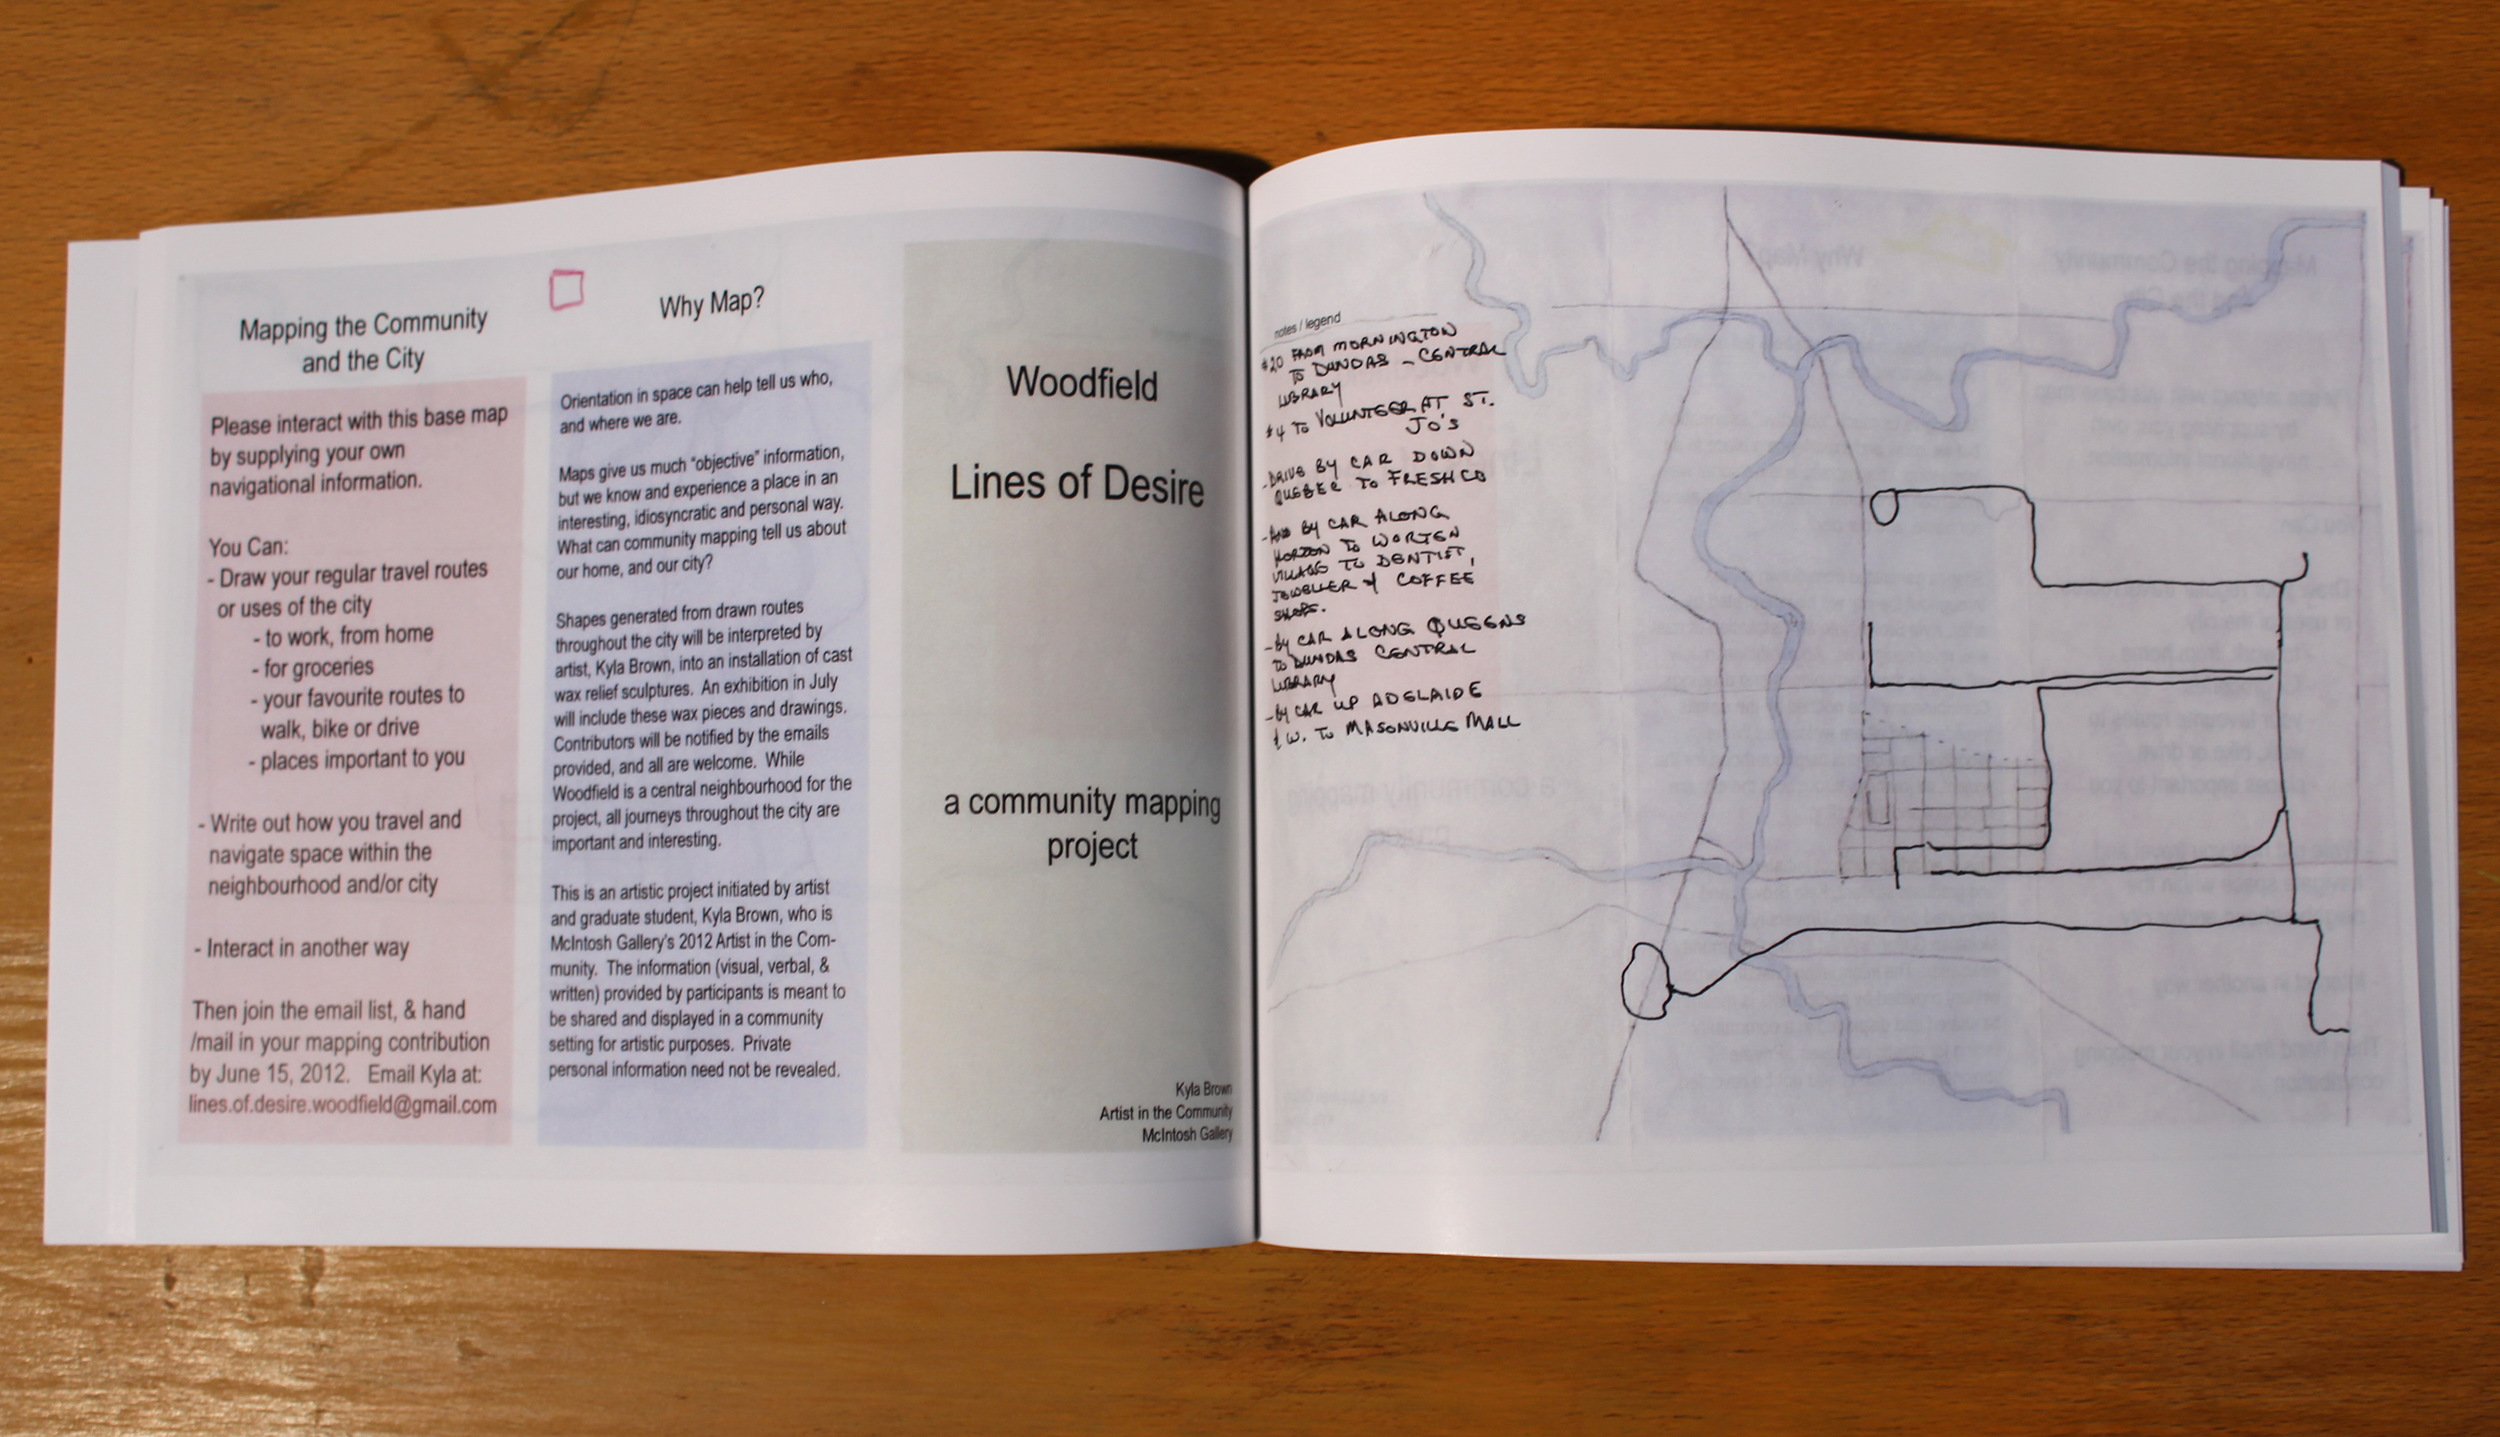 Mapping the Community
and the City
Please interact with this base map
by supplying your own
navigational information.
You Can:
- Draw your regular travel routes
or uses of the city
- to work, from home
- for groceries
- your favourite routes to
walk, bike or drive
- places important to you
- Write out how you travel and
navigate space within the
neighbourhood and/or city
- Interact in another way
Then join the email list, & hand
/mail in your mapping contribution
by June 15, 2012. Email Kyla at:
lines.of.desire.woodfield@gmail.com
Why Map?
Orientation in space can help tell us who,
and where we are.
Maps give us much “objective” information,
but we know and experience a place in an
interesting, idiosyncratic and personal way.
What can community mapping tell us about
our home, and our city?
Shapes generated from drawn routes
throughout the city will be interpreted by
artist, Kyla Brown, into an installation of cast
wax relief sculptures. An exhibition in July
will include these wax pieces and drawings.
Contributors will be notified by the emails
provided, and all are welcome. While
Woodfield is a central neighbourhood for the
project, all journeys throughout the city are
important and interesting.
This is an artistic project initiated by artist
and graduate student, Kyla Brown, who is
McIntosh Gallery's 2012 Artist in the Com-
munity. The information (visual, verbal, &
written) provided by participants is meant to
be shared and displayed in a community
setting for artistic purposes. Private
personal information need not be revealed.
Woodfield
Lines of Desire
a community mapping
project
Kyla Brown
Artist in the Community
McIntosh Gallery
notes / legend
#20 FROM MORNINGTON
TO DUNDAS - CENTRAL
LIBRARY
#4 TO VOLUNTEER AT ST.
JO'S
- DRIVE BY CAR DOWN
QUEBEC TO FRESHCO
- AND BY CAR ALONG
HORTON TO WORTEN
VILLAGE TO DENTIST,
JEWELLER & COFFEE
SHOPS.
- BY CAR ALONG QUEENS
TO DUNDAS CENTRAL
LIBRARY
- BY CAR UP ADELAIDE
& W. TO MASONVILLE MALL